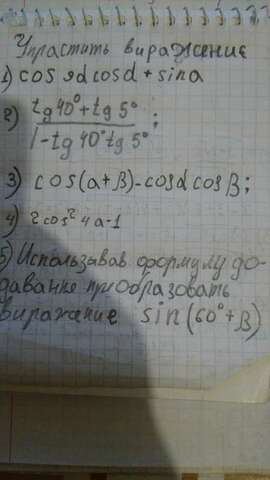 Упрастить виражение
1) cos 9α cosα + sina
2) tg 40° + tg 5° / 1 - tg 40° tg 5° ;
3) cos(a+β) - cosα cosβ;
4) 2cos² 4a - 1
5) Использывав формулу до-
давание приобразовать
виражение sin(60° + β)